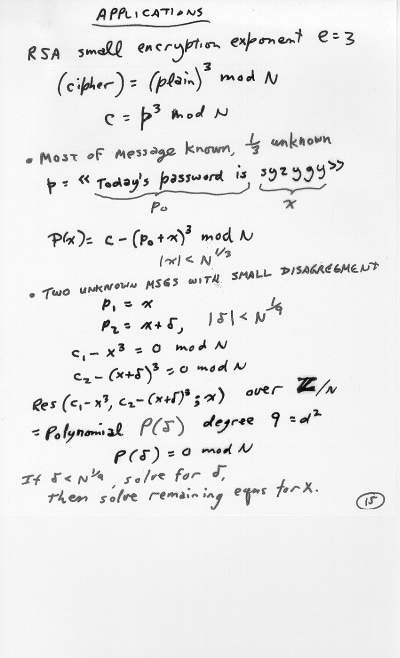 APPLICATIONS
RSA small encryption exponent e=3
(cipher) = (plain)³ mod N
c = p³ mod N
• MOST OF MESSAGE KNOWN, 1/3 unknown
p = << Today's password is syzygy >>
p₀ x
P(x) = c - (p₀+x)³ mod N
|x| < N^{1/3}
• TWO UNKNOWN MSGS WITH SMALL DISAGREEMENT
p₁ = x
p₂ = x+δ, |δ| < N^{1/9}
c₁ - x³ = 0 mod N
c₂ - (x+δ)³ = 0 mod N
Res (c₁-x³, c₂-(x+δ)³; x) over ℤ/N
= Polynomial P(δ) degree 9 = d²
P(δ) = 0 mod N
If δ < N^{1/9}, solve for δ,
then solve remaining eqns for x.
15